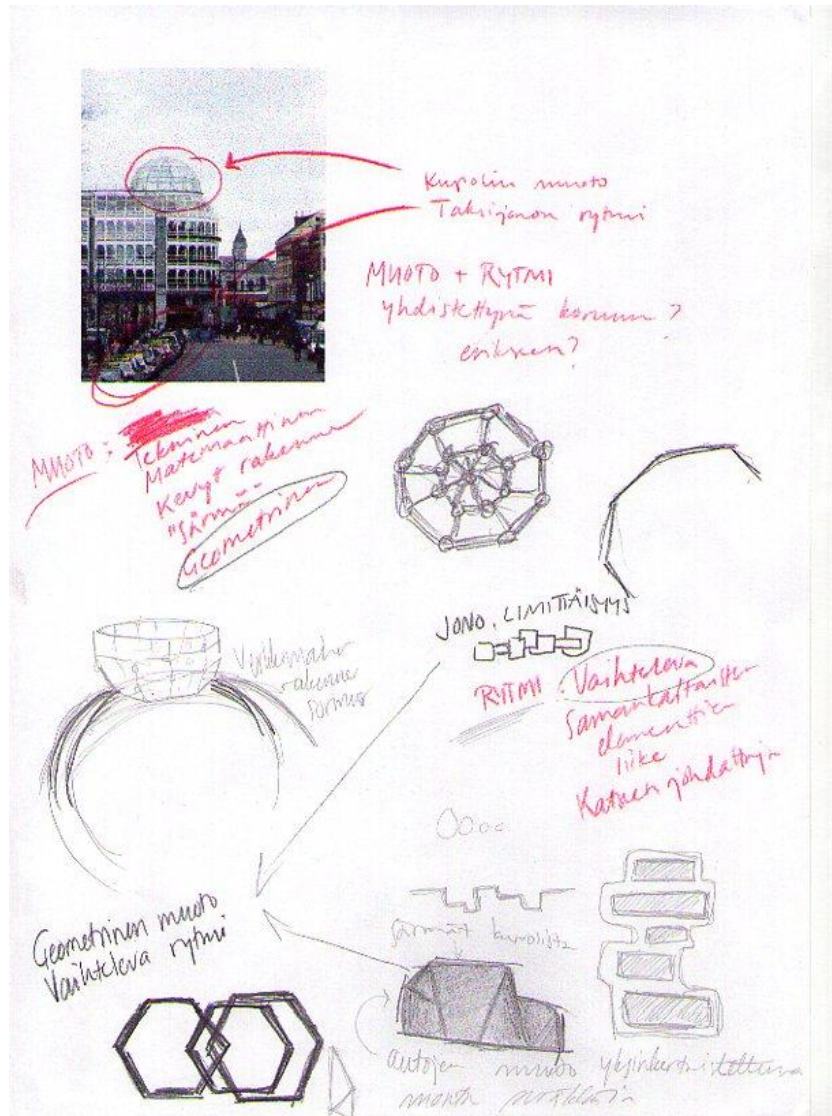 Kupolin muoto
Taksijonon rytmi
MUOTO + RYTMI
yhdistettynä koruun?
MUOTO:
Tekninen
Matemaattinen
Kevyt rakenne
"Särmä"
Geometrinen
JONO, LIMITTÄISYYS
Verkkomainen
rakenne
RYTMI: Vaihteleva
Samankaltaisten
elementtien
liike
Katseen johdattaja
Geometrinen muoto
Vaihteleva rytmi
särmät kupolista
autojen muoto yksinkertaistettuna